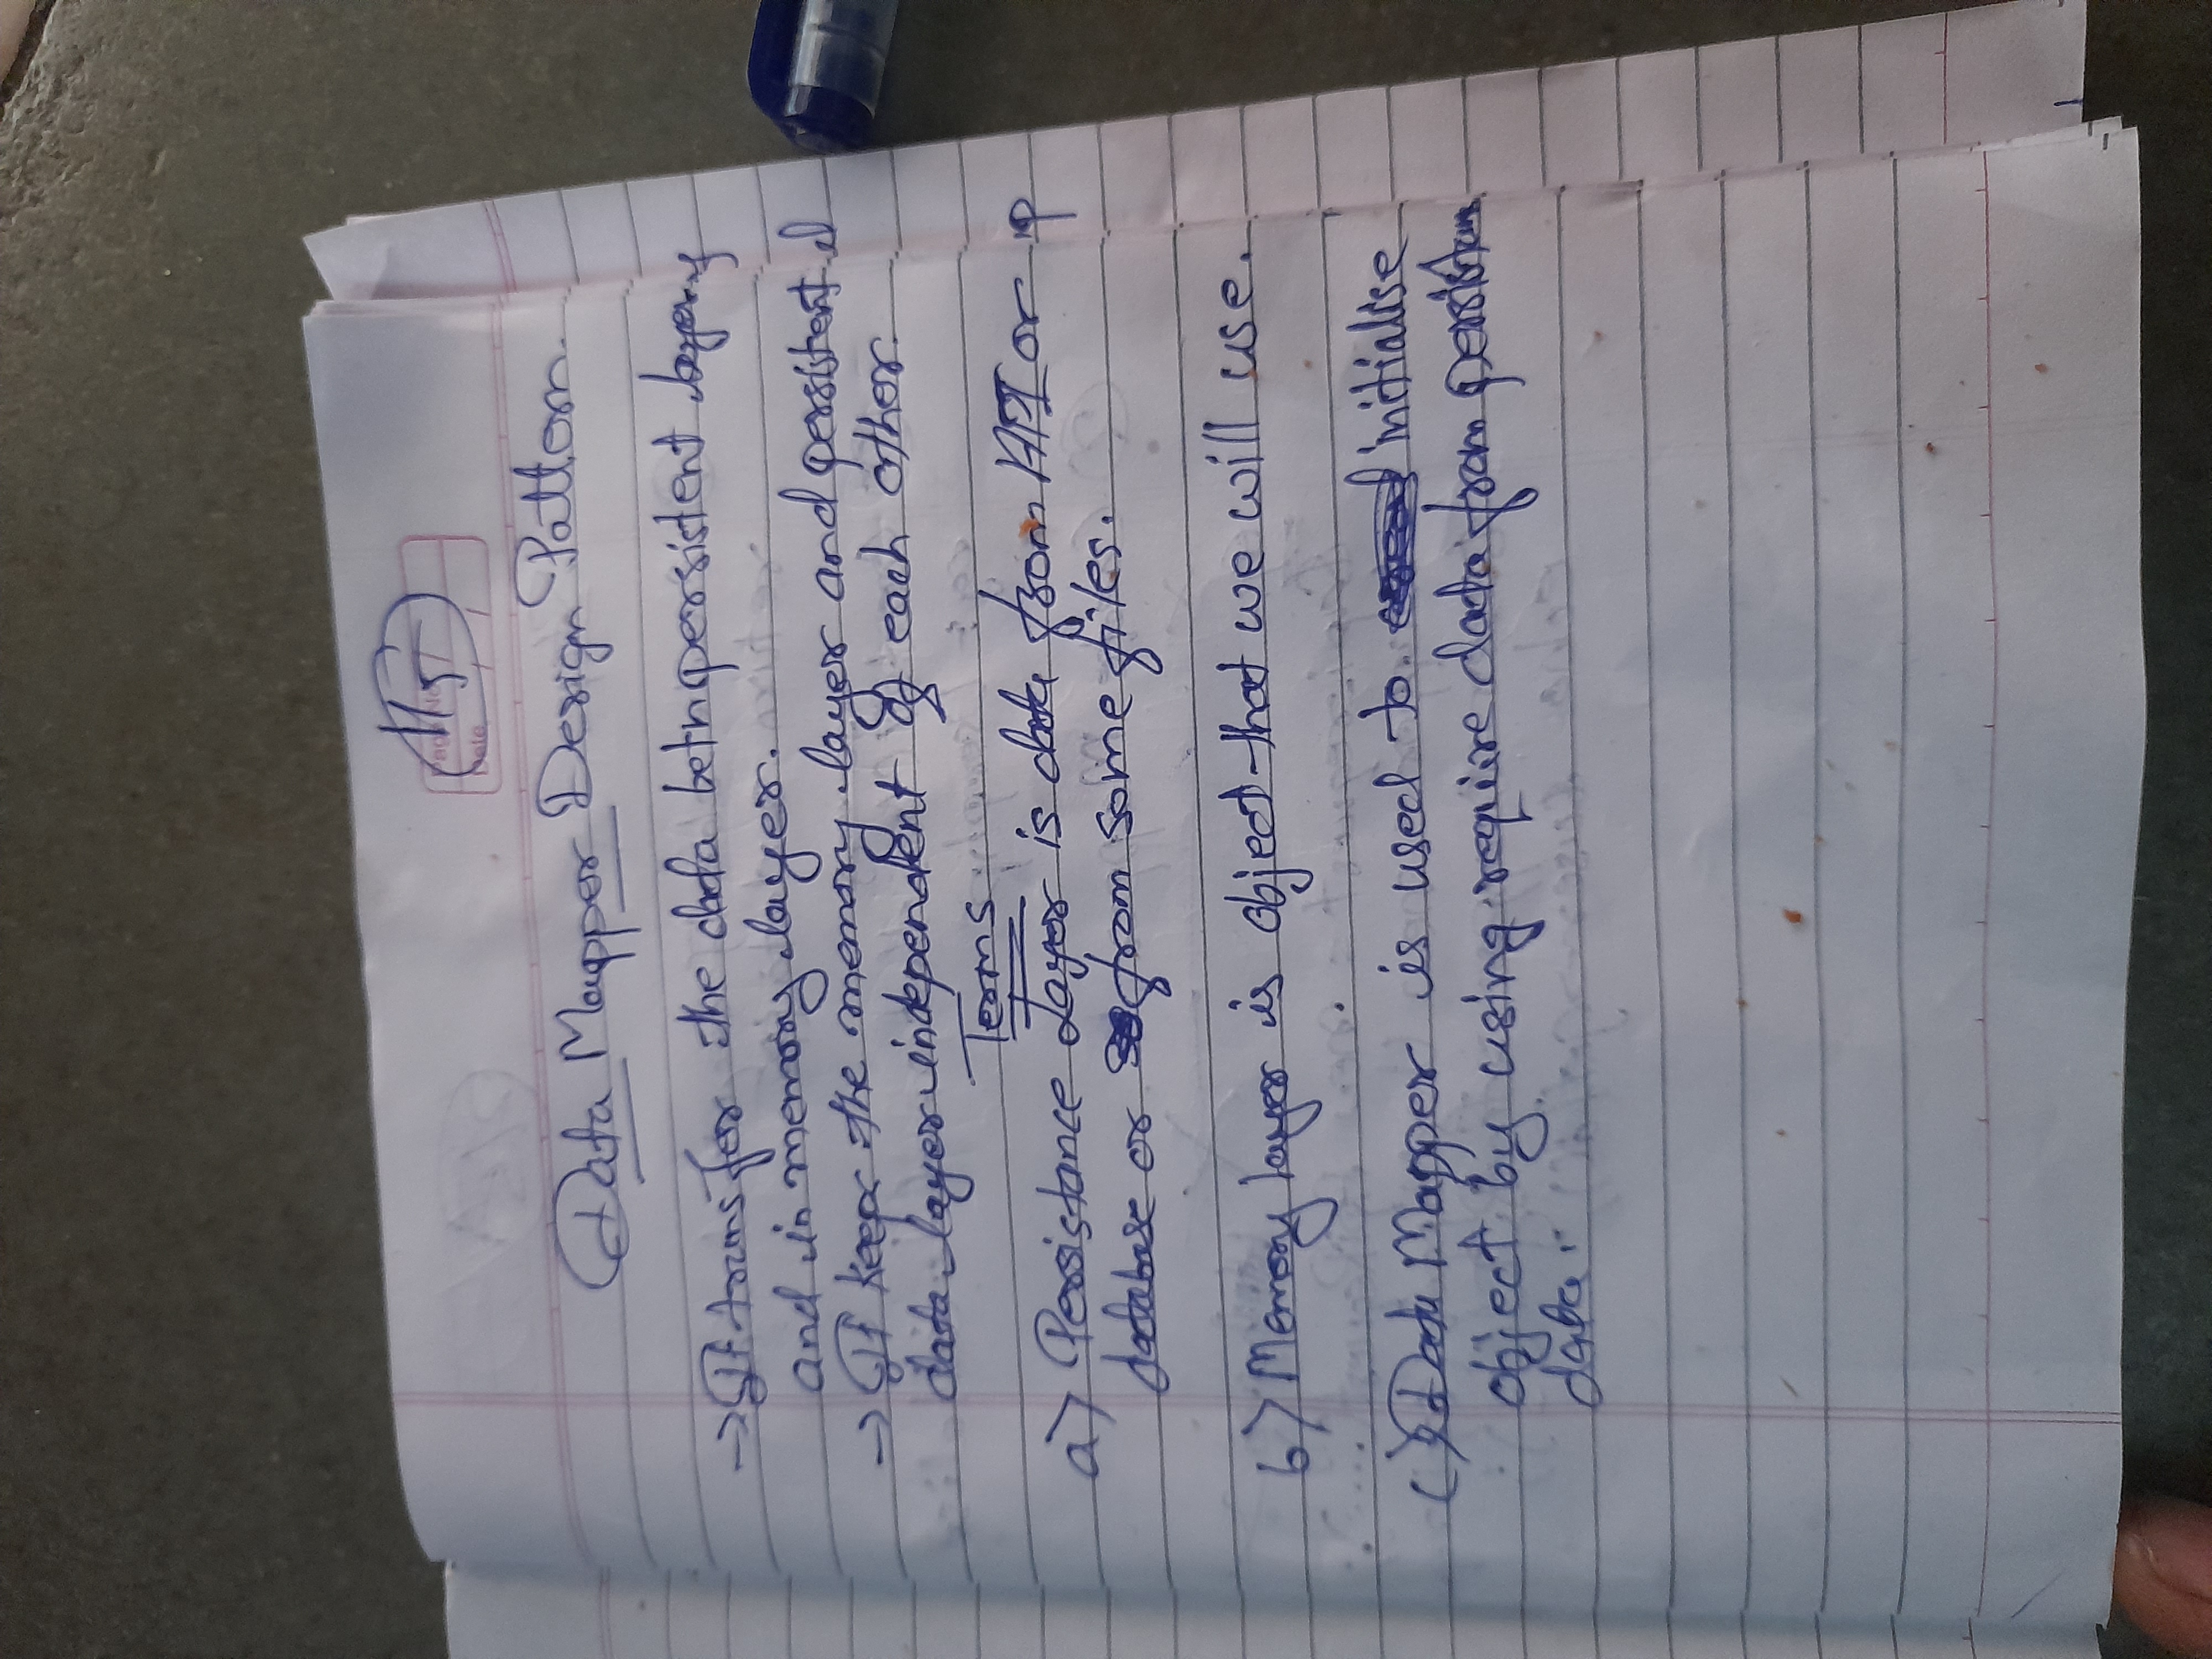 115
Page No.
Date / /
Data Mapper Design Pattern.
→ It transfer the data betn persistent layer
and in memory layer.
→ It keeps the memory layer and persistent
data layer independent of each other.
Terms
a) Persistance Layer is data from API or
database or from some files.
b) Memory layer is object that we will use.
c) Data Mapper is used to initialise
object by using require data from
data.